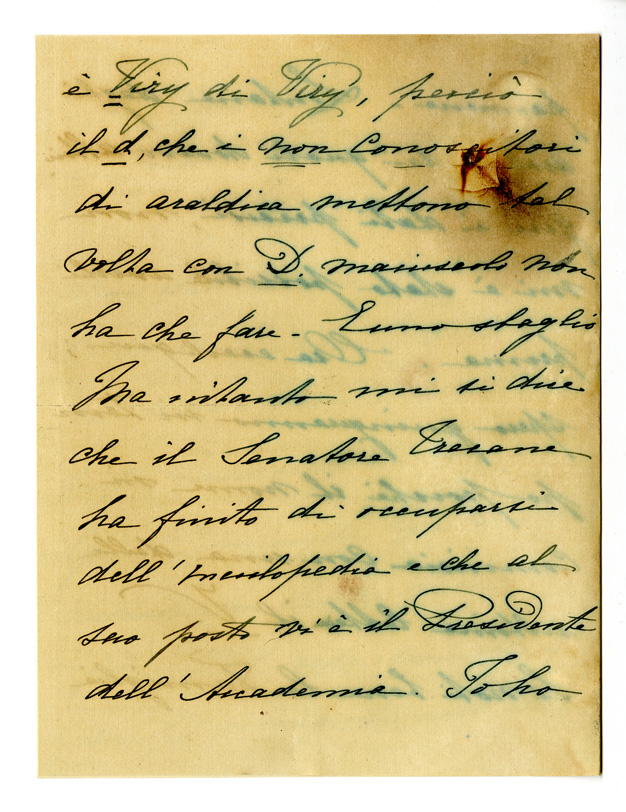 è Viry di Viry, perciò
il d, che i non Conoscitori
di araldica mettono tal
volta con D. maiuscolo non
ha che fare - E uno sbaglio
Ma intanto mi si dice
che il Senatore Treccane
ha finito di occuparsi
dell'Enciclopedia e che al
suo posto vi è il Presidente
dell'Accademia. Io ho